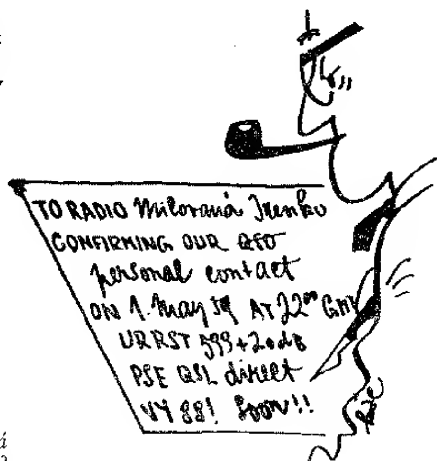 TO RADIO Milovaná Irenko
CONFIRMING OUR QSO
personal contact
ON 1. May 59 AT 22⁰⁰ GMT
UR RST 599 + 20 dB
PSE QSL direct
VY 88! Soon!!
á